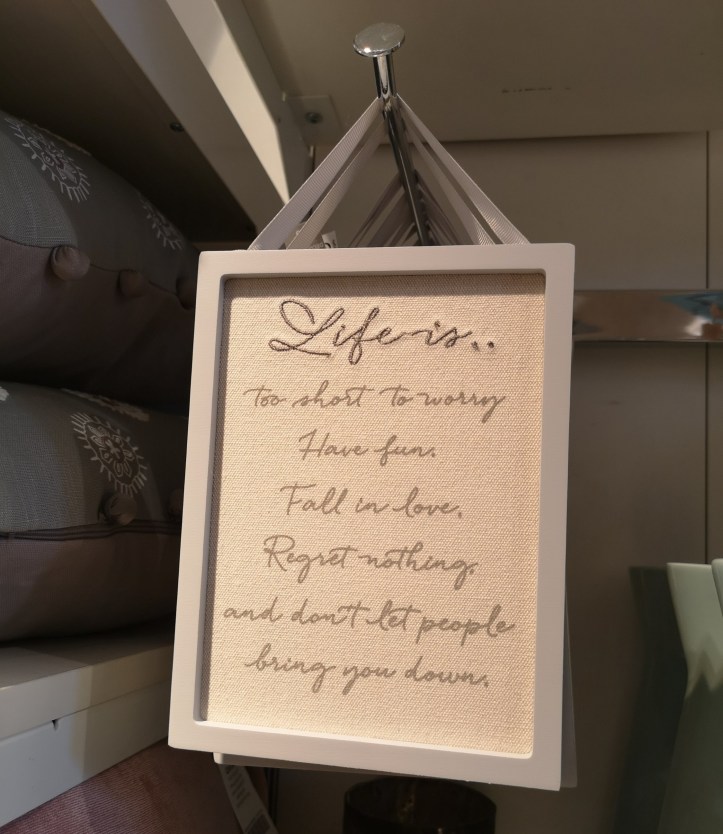 Life is..
too short to worry
Have fun.
Fall in love.
Regret nothing.
and don't let people
bring you down.